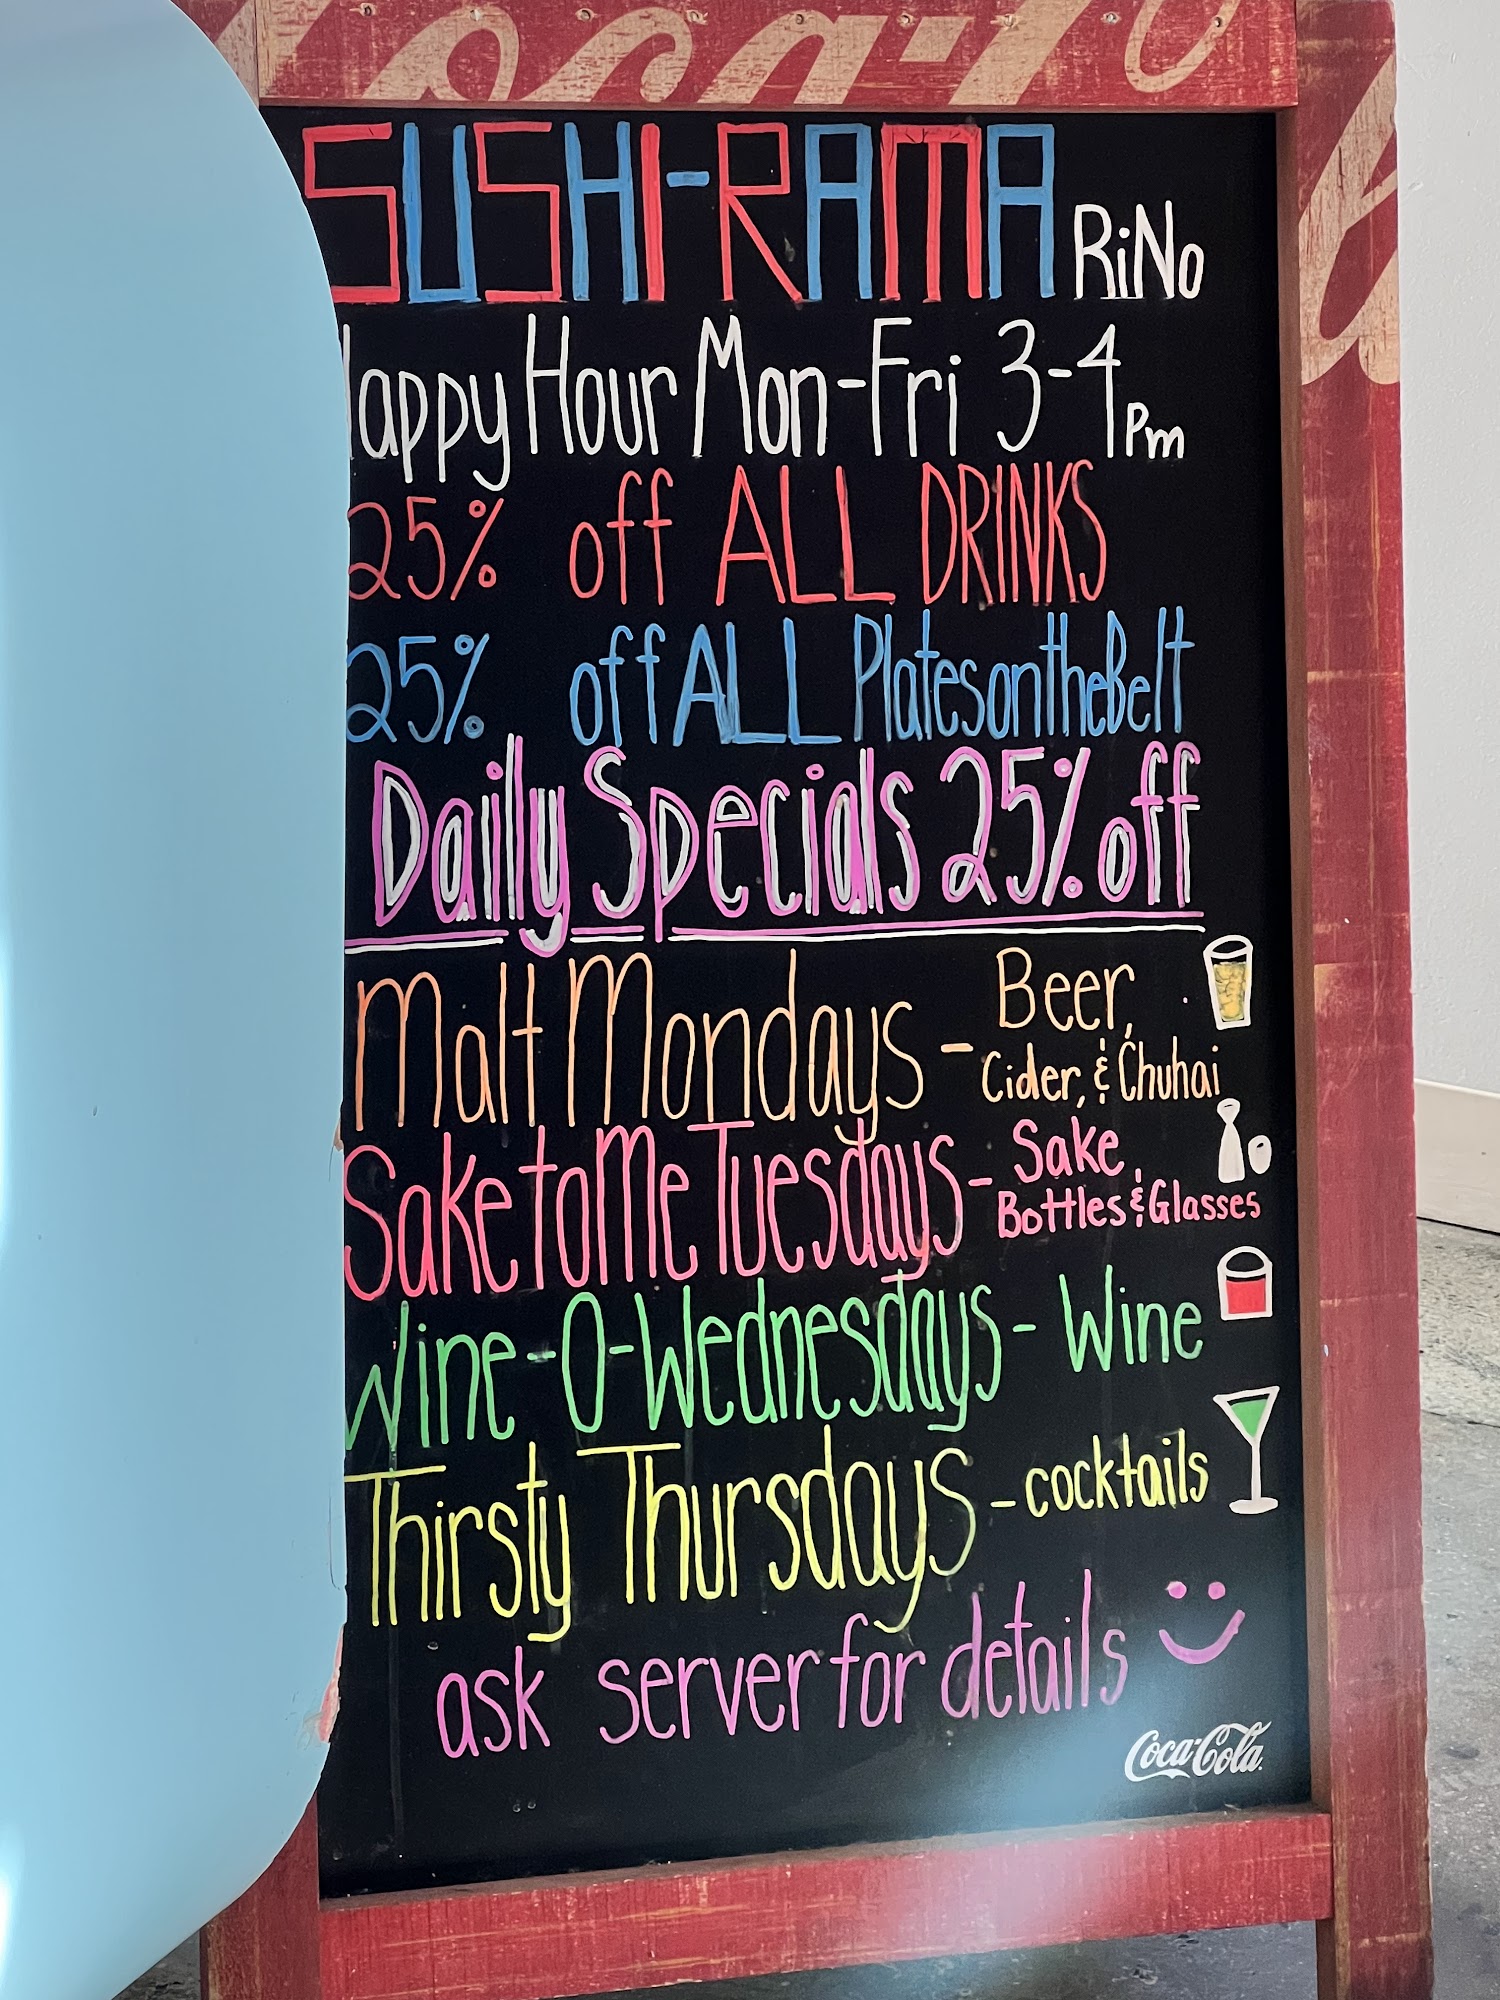 Coca-Co
SUSHI-RAMA RiNo
Happy Hour Mon-Fri 3-4pm
25% off ALL DRINKS
25% off ALL Plates on the Belt
Daily Specials 25% off
Malt Mondays - Beer,
Cider, & Chuhai
Sake to Me Tuesdays - Sake
Bottles & Glasses
Wine-O-Wednesdays - Wine
Thirsty Thursdays - cocktails
ask server for details
Coca-Cola